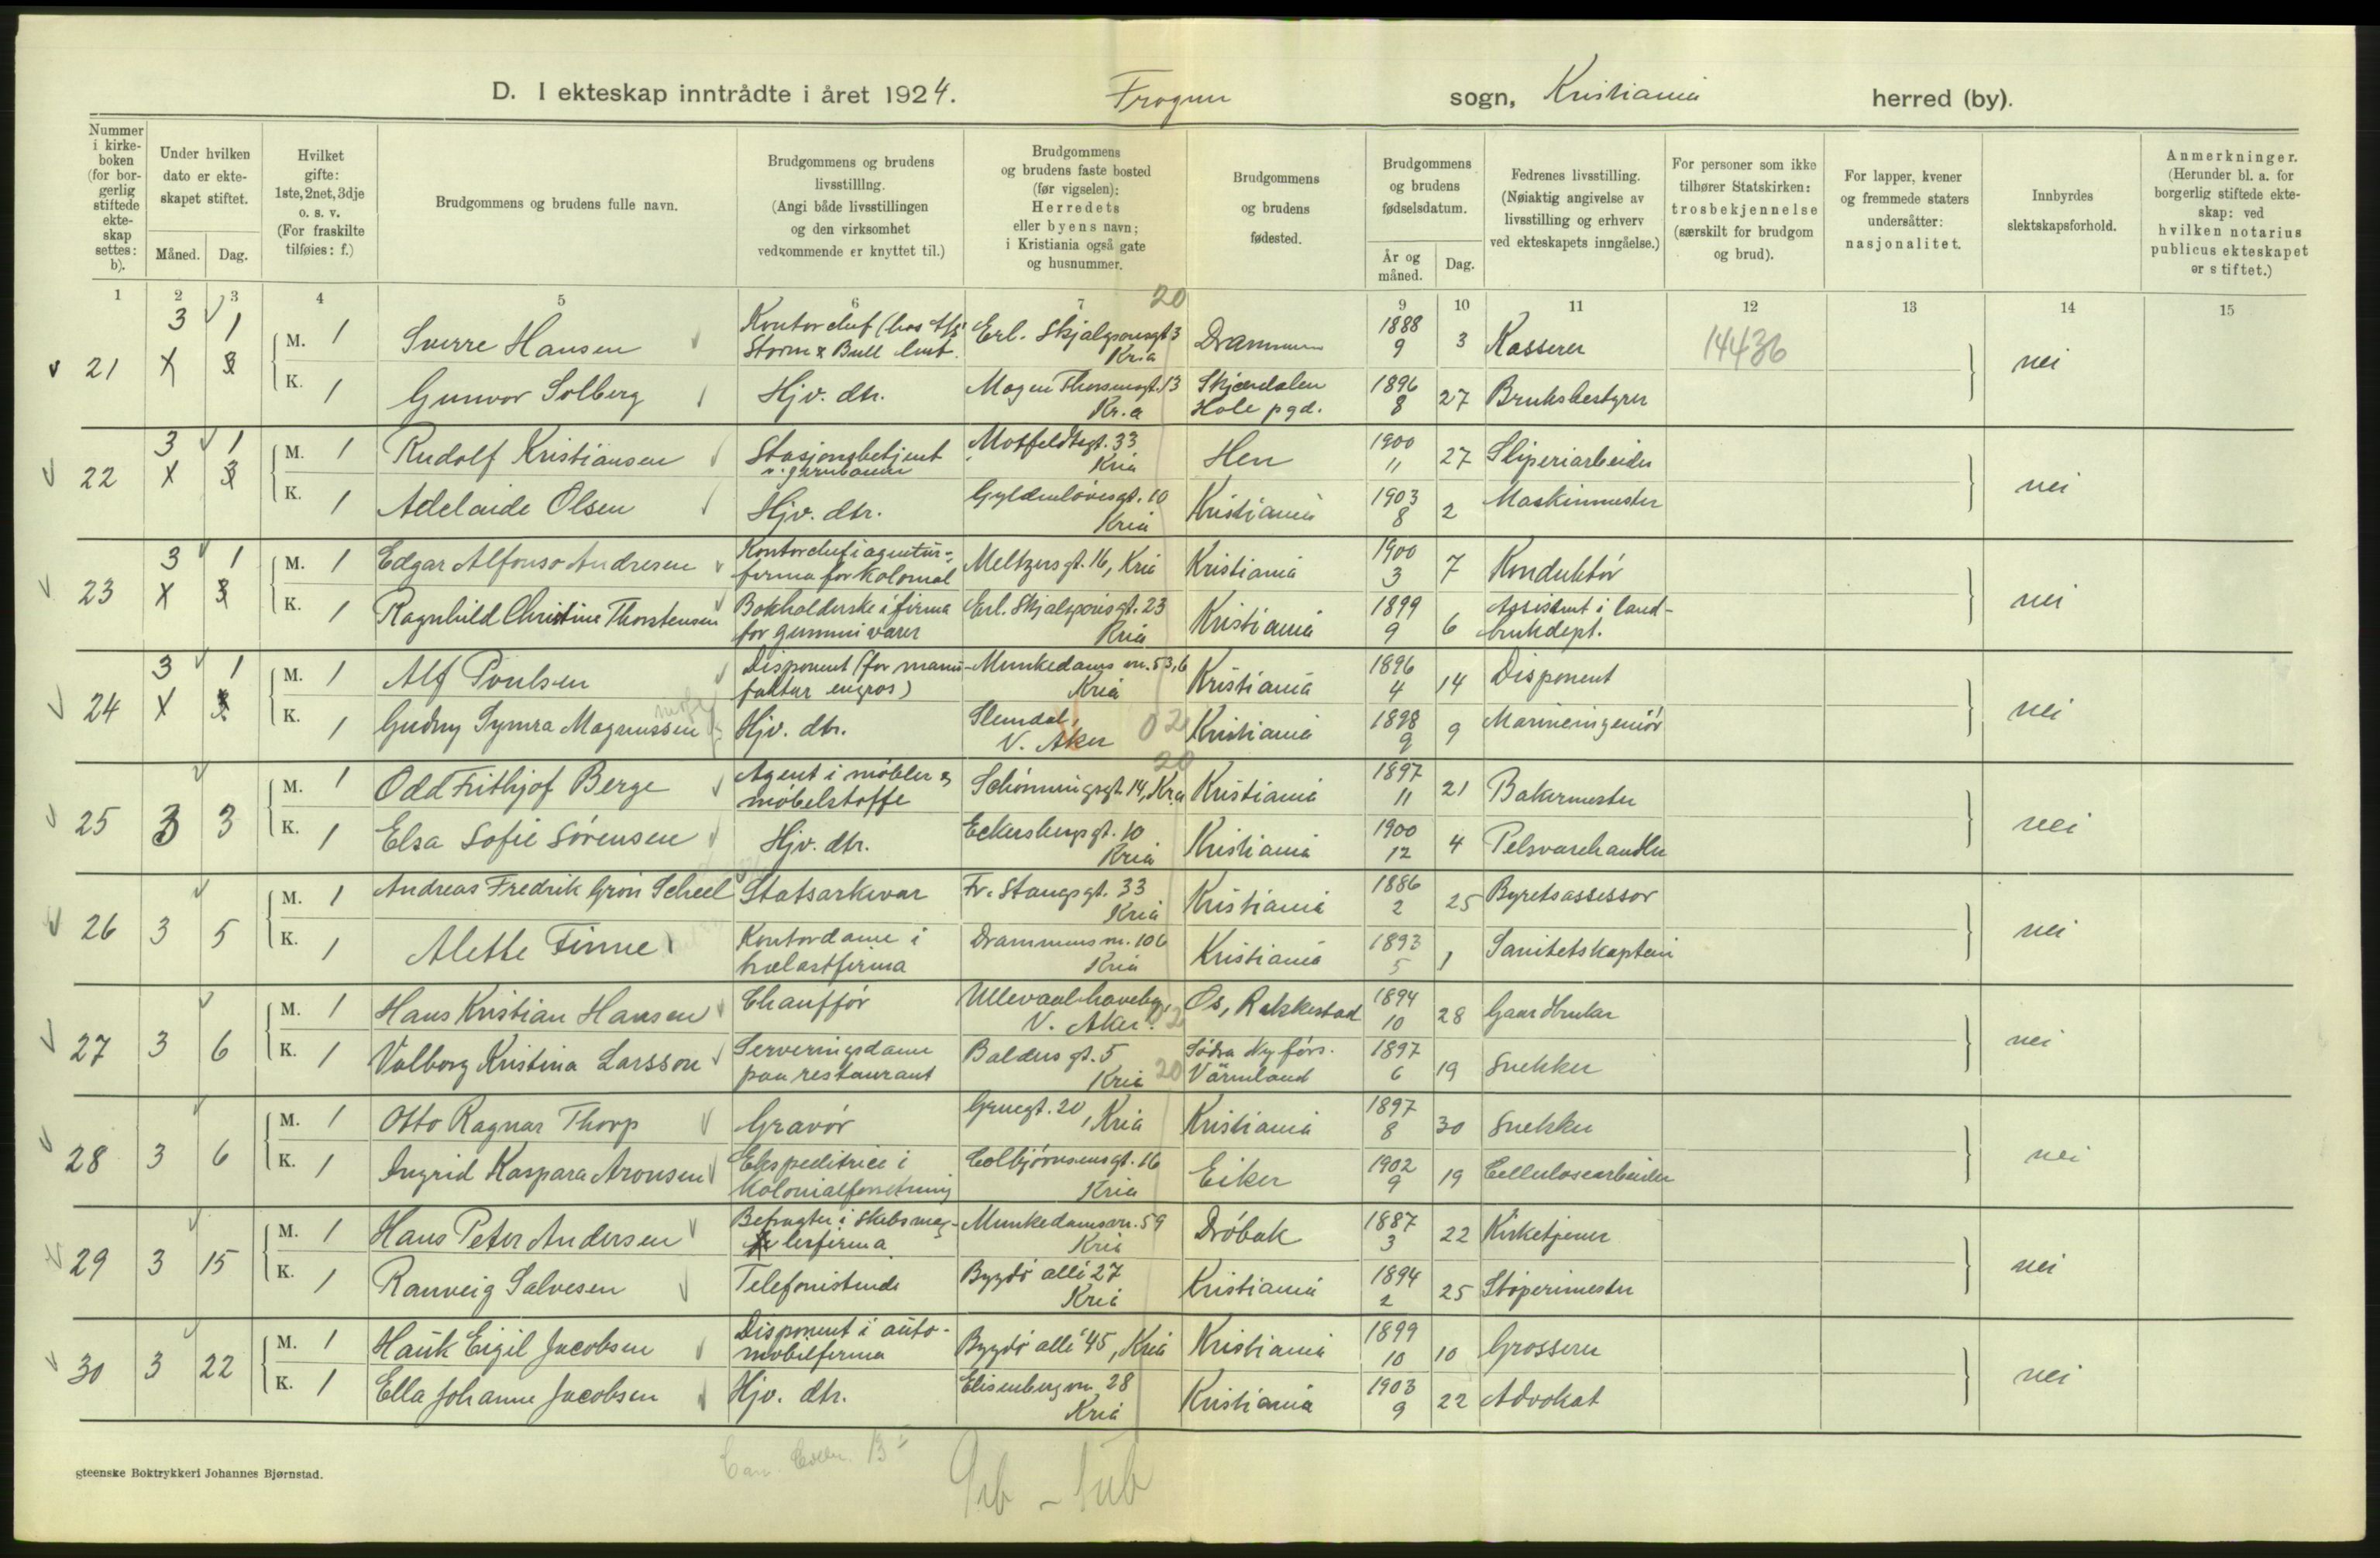 D. I ekteskap inntrådte i året 1924. Frogner sogn, Kristiania herred (by).
Nummer i kirke-boken (for bor-gerlig stiftede ekte-skap settes: b).
Under hvilken dato er ekte-skapet stiftet.
Måned. Dag.
Hvilket gifte: 1ste, 2net, 3dje o. s. v. (For fraskilte tilføies: f.)
Brudgommens og brudens fulle navn.
Brudgommens og brudens livsstilling. (Angi både livsstillingen og den virksomhet vedkommende er knyttet til.)
Brudgommens og brudens faste bosted (før vigselen): Herredets eller byens navn; i Kristiania også gate og husnummer.
Brudgommens og brudens fødested.
Brudgommens og brudens fødselsdatum.
År og måned. Dag.
Fedrenes livsstilling. (Nøiaktig angivelse av livsstilling og erhverv ved ekteskapets inngåelse.)
For personer som ikke tilhører Statskirken: trosbekjennelse (særskilt for brudgom og brud).
For lapper, kvener og fremmede staters undersåtter: nasjonalitet.
Innbyrdes slektskapsforhold.
Anmerkninger. (Herunder bl. a. for borgerlig stiftede ekte-skap: ved hvilken notarius publicus ekteskapet er stiftet.)
1 2 3 4 5 6 7 8 9 10 11 12 13 14 15
20
21 3 1 M. 1 Sverre Hansen Kontorchef (hos A/S Storm & Bull Erl. Skjalgssonsgt 3 Kria Drammen 1888 9 3 Kasserer 14436 nei
K. 1 Gunvor Solberg Hjv. dtr. Magen Thorsensgt. 13 Kr.a Skjærdalen Hole pgd. 1896 8 27 Bruksbestyrer
22 3 1 M. 1 Rudolf Kristiansen Stasjonsbetjent v. jernbanen Motzfeldtsgt. 33 Kria Hen 1900 11 27 Sliperiarbeider nei
K. 1 Adelaide Olsen Hjv. dtr. Gyldenløvesgt. 10 Kria Kristiania 1903 8 2 Maskinmester
23 3 1 M. 1 Edgar Alfonso Andresen Kontorchef i agentur-firma for kolonial Meltzersgt. 16, Kria Kristiania 1900 3 7 Konduktør nei
K. 1 Ragnhild Christine Thorstensen Bokholderske i firma for gummivarer Erl. Skjalgssonsgt. 23 Kria Kristiania 1899 9 6 Assistent i land-bruksdept.
24 3 1 M. 1 Alf Poulsen Disponent (for manu-faktur engros) Munkedamsvn. 53,6 Kria Kristiania 1896 4 14 Disponent nei
K. 1 Gudny Symra Magnussen Hjv. dtr. Slemdal, V. Aker 02 Kristiania 1898 9 9 Marineingeniør
20
25 3 3 M. 1 Odd Frithjof Berge Agent i møbler & møbelstoffe Schønningsgt. 14, Kria Kristiania 1897 11 21 Bakermester nei
K. 1 Elsa Sofie Sørensen Hjv. dtr. Eckersbergsgt. 10 Kria Kristiania 1900 12 4 Pelsvarehandler
26 3 5 M. 1 Andreas Fredrik Grøn Scheel Statsarkivar Fr. Stangsgt. 33 Kria Kristiania 1886 2 25 Byretsassessor nei
K. 1 Alette Finne Kontordame i trælastfirma Drammensvn. 106 Kria Kristiania 1893 5 1 Sanitetskaptein
27 3 6 M. 1 Hans Kristian Hansen Chauffør Ullevaal haveby, V. Aker. 02 Os, Rakkestad 1894 10 28 Gaardbruker nei
K. 1 Valborg Kristina Larsson Serveringsdame paa restaurant Baldersgt. 5 Kria 20 Södra Ny förs. Värmland 1897 6 19 Snekker
28 3 6 M. 1 Otto Ragnar Thorp Gravør Gruegt. 20, Kria Kristiania 1897 8 30 Snekker nei
K. 1 Ingrid Kaspara Aronsen Ekspeditrice i kolonialforretning Colbjørnsensgt. 16 Kria Eiker 1902 9 19 Cellulosearbeider
29 3 15 M. 1 Hans Peter Andersen Befragter i skibsmeg-lerfirma Munkedamsvn. 59 Kria Drøbak 1887 3 22 Kirketjener nei
K. 1 Ranveig Salvesen Telefonistinde Bygdø allé 27 Kria Kristiania 1894 2 25 Støperimester
30 3 22 M. 1 Hauk Eigil Jacobsen Disponent i auto-mobilfirma Bygdø allé 45, Kria Kristiania 1899 10 10 Grosserer nei
K. 1 Ella Johanne Jacobsen Hjv. dtr. Elisenbergvn. 28 Kria Kristiania 1903 9 22 Advokat
steenske Boktrykkeri Johannes Bjørnstad.